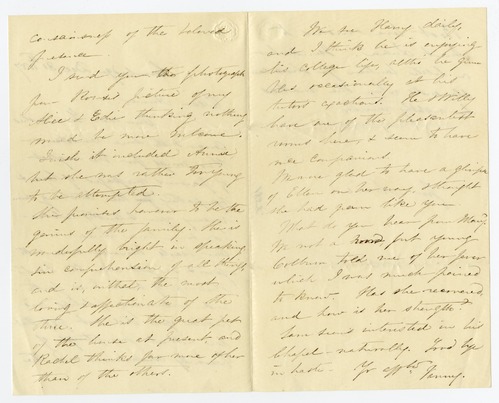 consciousness of the beloved
I send you the photograph
from Rowse's picture of my
Alice & Edie thinking nothing
could be more winsome.
I wish it included Annie
but she was rather too young
to be attempted.
She promises however to be the
genius of the family. She is
wonderfully bright in speaking
in comprehension of all things
and is, withal, the most
loving & affectionate of the
three. She is the great pet
of the house at present, and
Rachel thinks far more of her
than of the others.
We see Harry daily,
and I think he is enjoying
his college life, altho' he
occasionally at his
He & Willy
have one of the pleasantest
rooms here, & seem to have
nice companions.
glad to have a glimpse
of Ellen on her way, & thought
she had grown like you.
What do you hear from Mary
not a word, but young
told me of her fever
which I was much pained
to know. Has she recovered
and how is her strength?
Sam seems interested in his
Chapel - naturally. Good bye
in haste. Yr affte